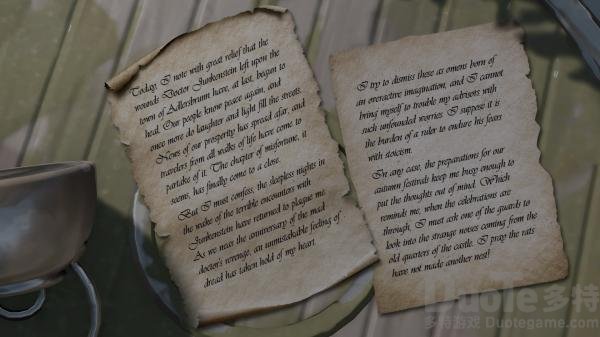 Today, I note with great relief that the
wounds Doctor Junkenstein left upon the
town of Adlersbrunn have, at last, begun to
heal. Our people know peace again, and
once more do laughter and light fill the streets.
News of our prosperity has spread afar, and
travelers from all walks of life have come to
partake of it. The chapter of misfortune, it
seems, has finally come to a close.
But I must confess, the sleepless nights in
the wake of the terrible encounters with
Junkenstein have returned to plague me.
As we near the anniversary of the mad
doctor's revenge, an unmistakable feeling of
dread has taken hold of my heart.
I try to dismiss these as omens born of
an overactive imagination, and I cannot
bring myself to trouble my advisors with
such unfounded worries. I suppose it is
the burden of a ruler to endure his fears
with stoicism.
In any case, the preparations for our
autumn festivals keep me busy enough to
put the thoughts out of mind. Which
reminds me, when the celebrations are
through, I must ask one of the guards to
look into the strange noises coming from the
old quarters of the castle. I pray the rats
have not made another nest!
Duote多特
多特游戏 Duotegame.com